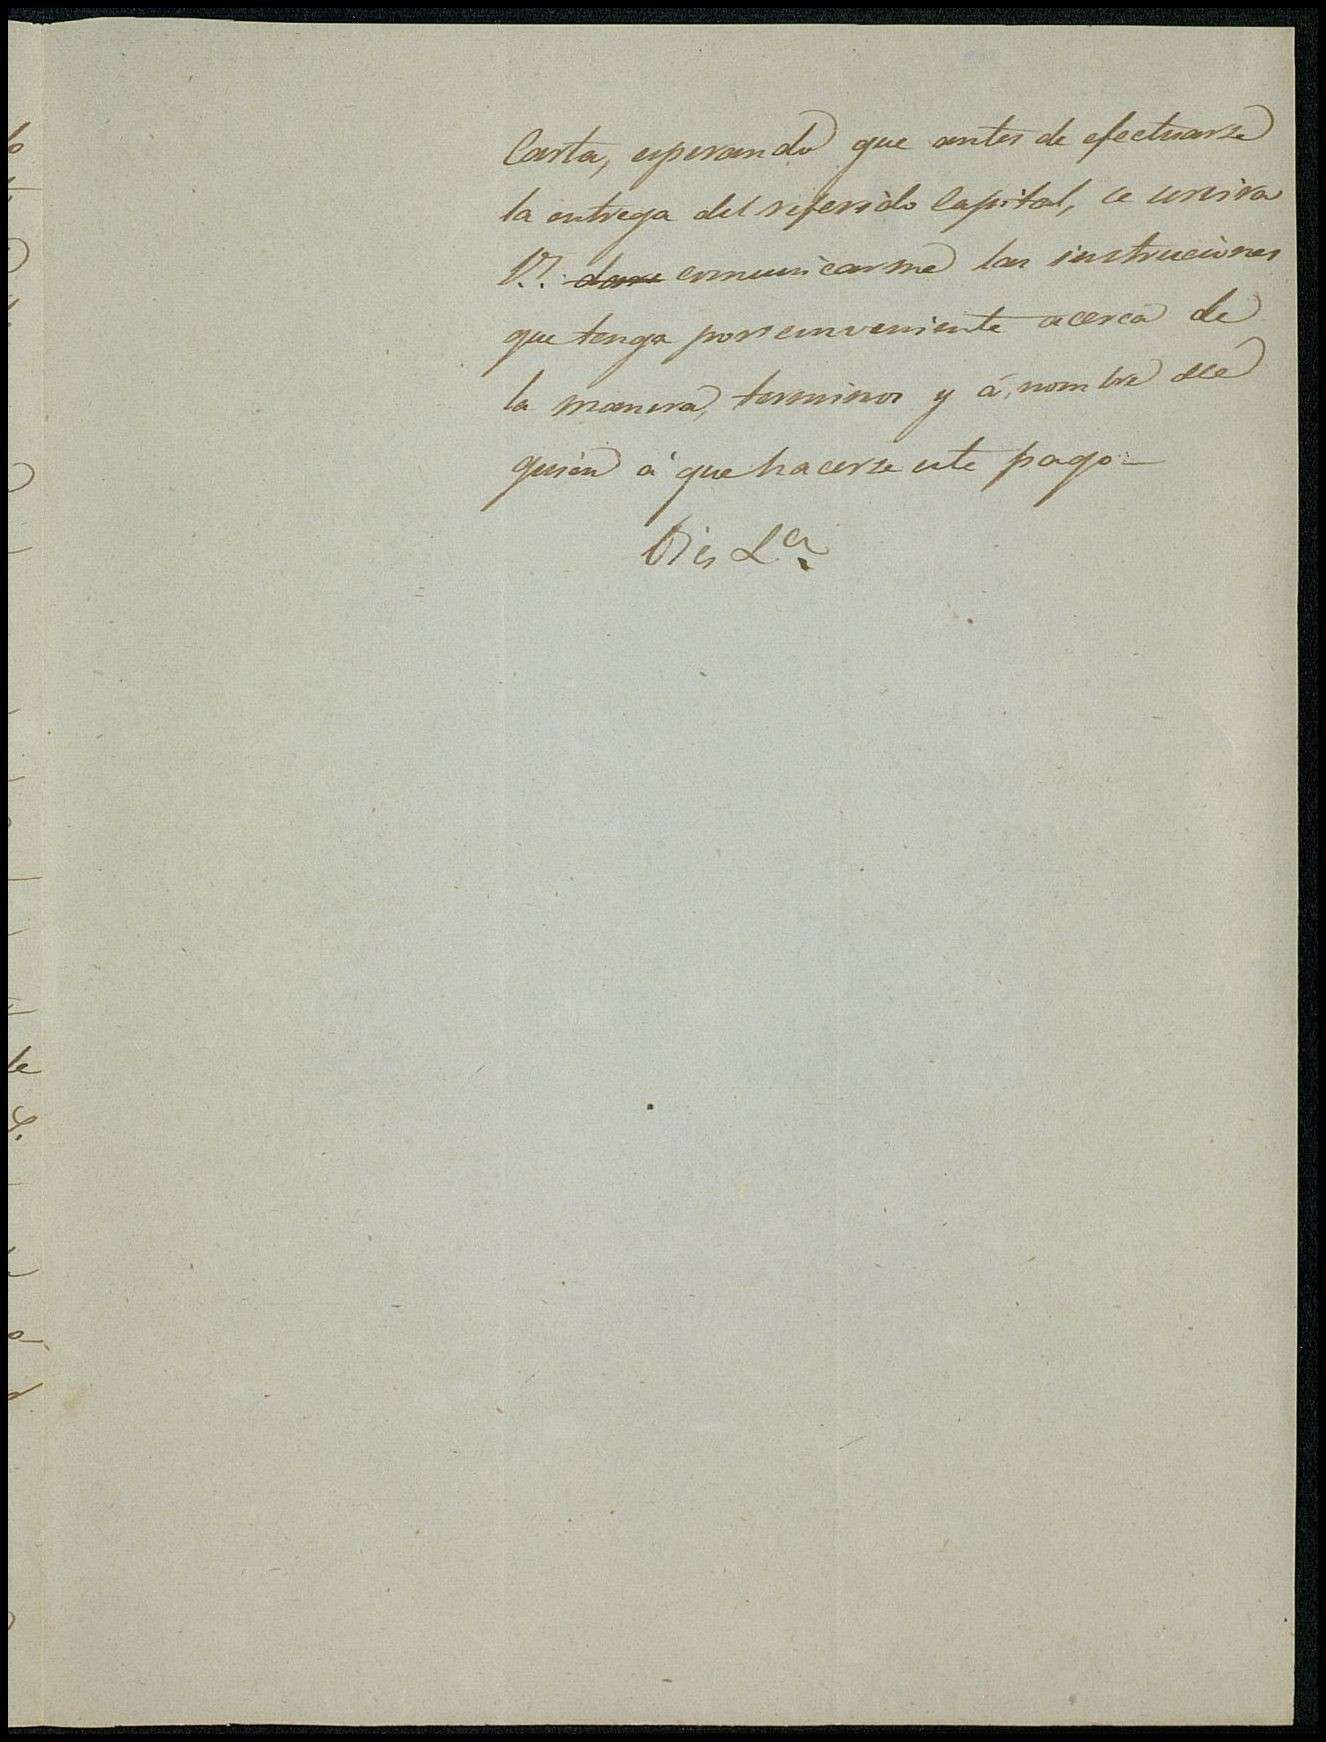 Carta, esperando que antes de efectuarse
la entrega del referido Capital, se sirva
V. comunicarme las instrucciones
que tenga por conveniente acerca de
la manera, terminos y á nombre de
quien á que hacerse este pago
Dios